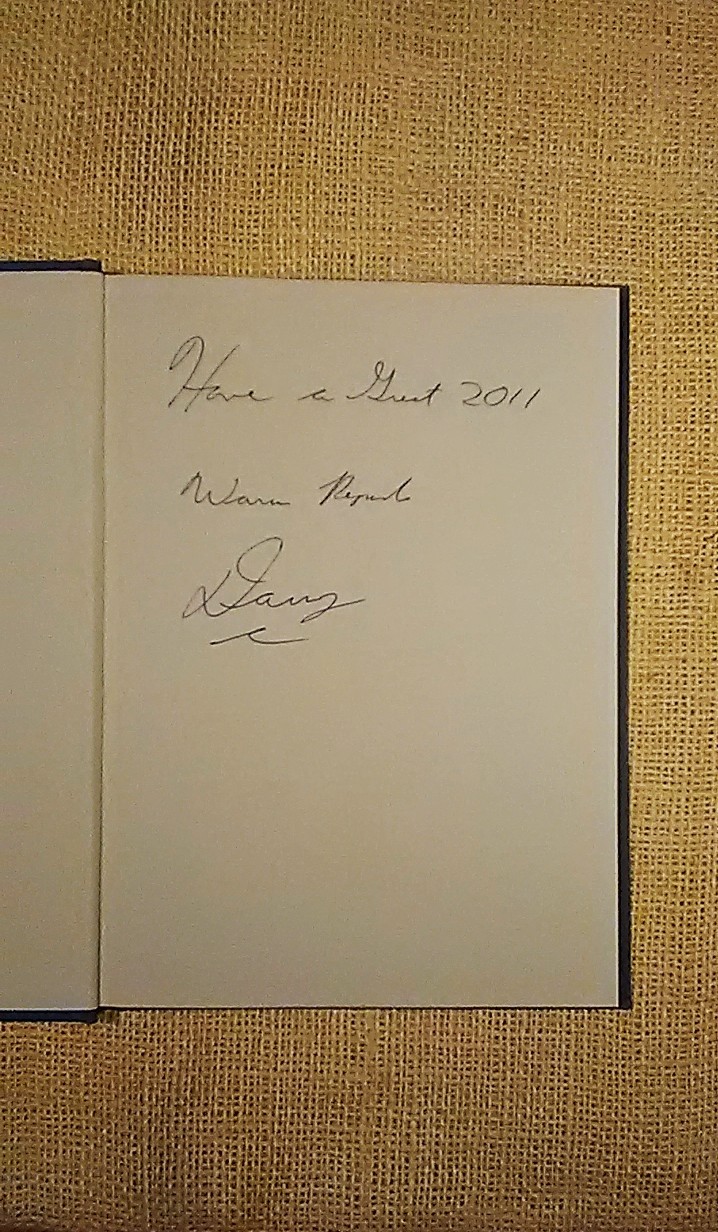 Have a Great 2011
Warm Regards